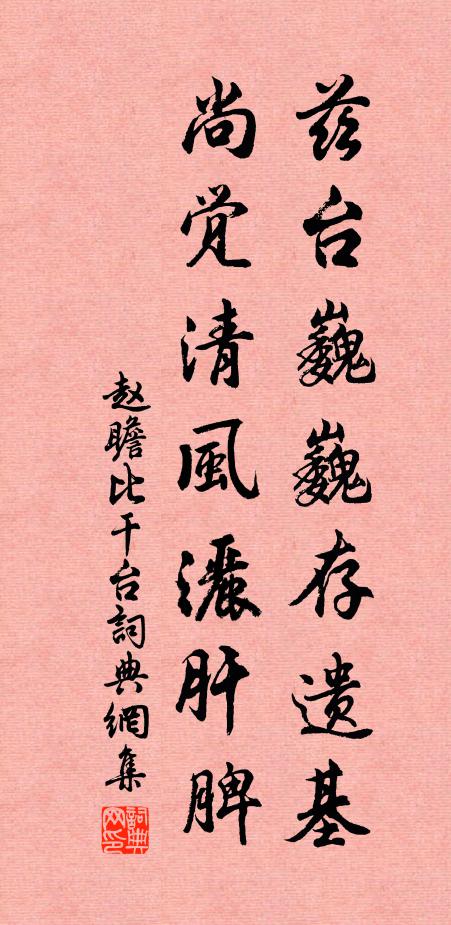 兹台巍巍存遗基
尚觉清風灑肝脾
赵瞻比干台詞典網集
詞典网印